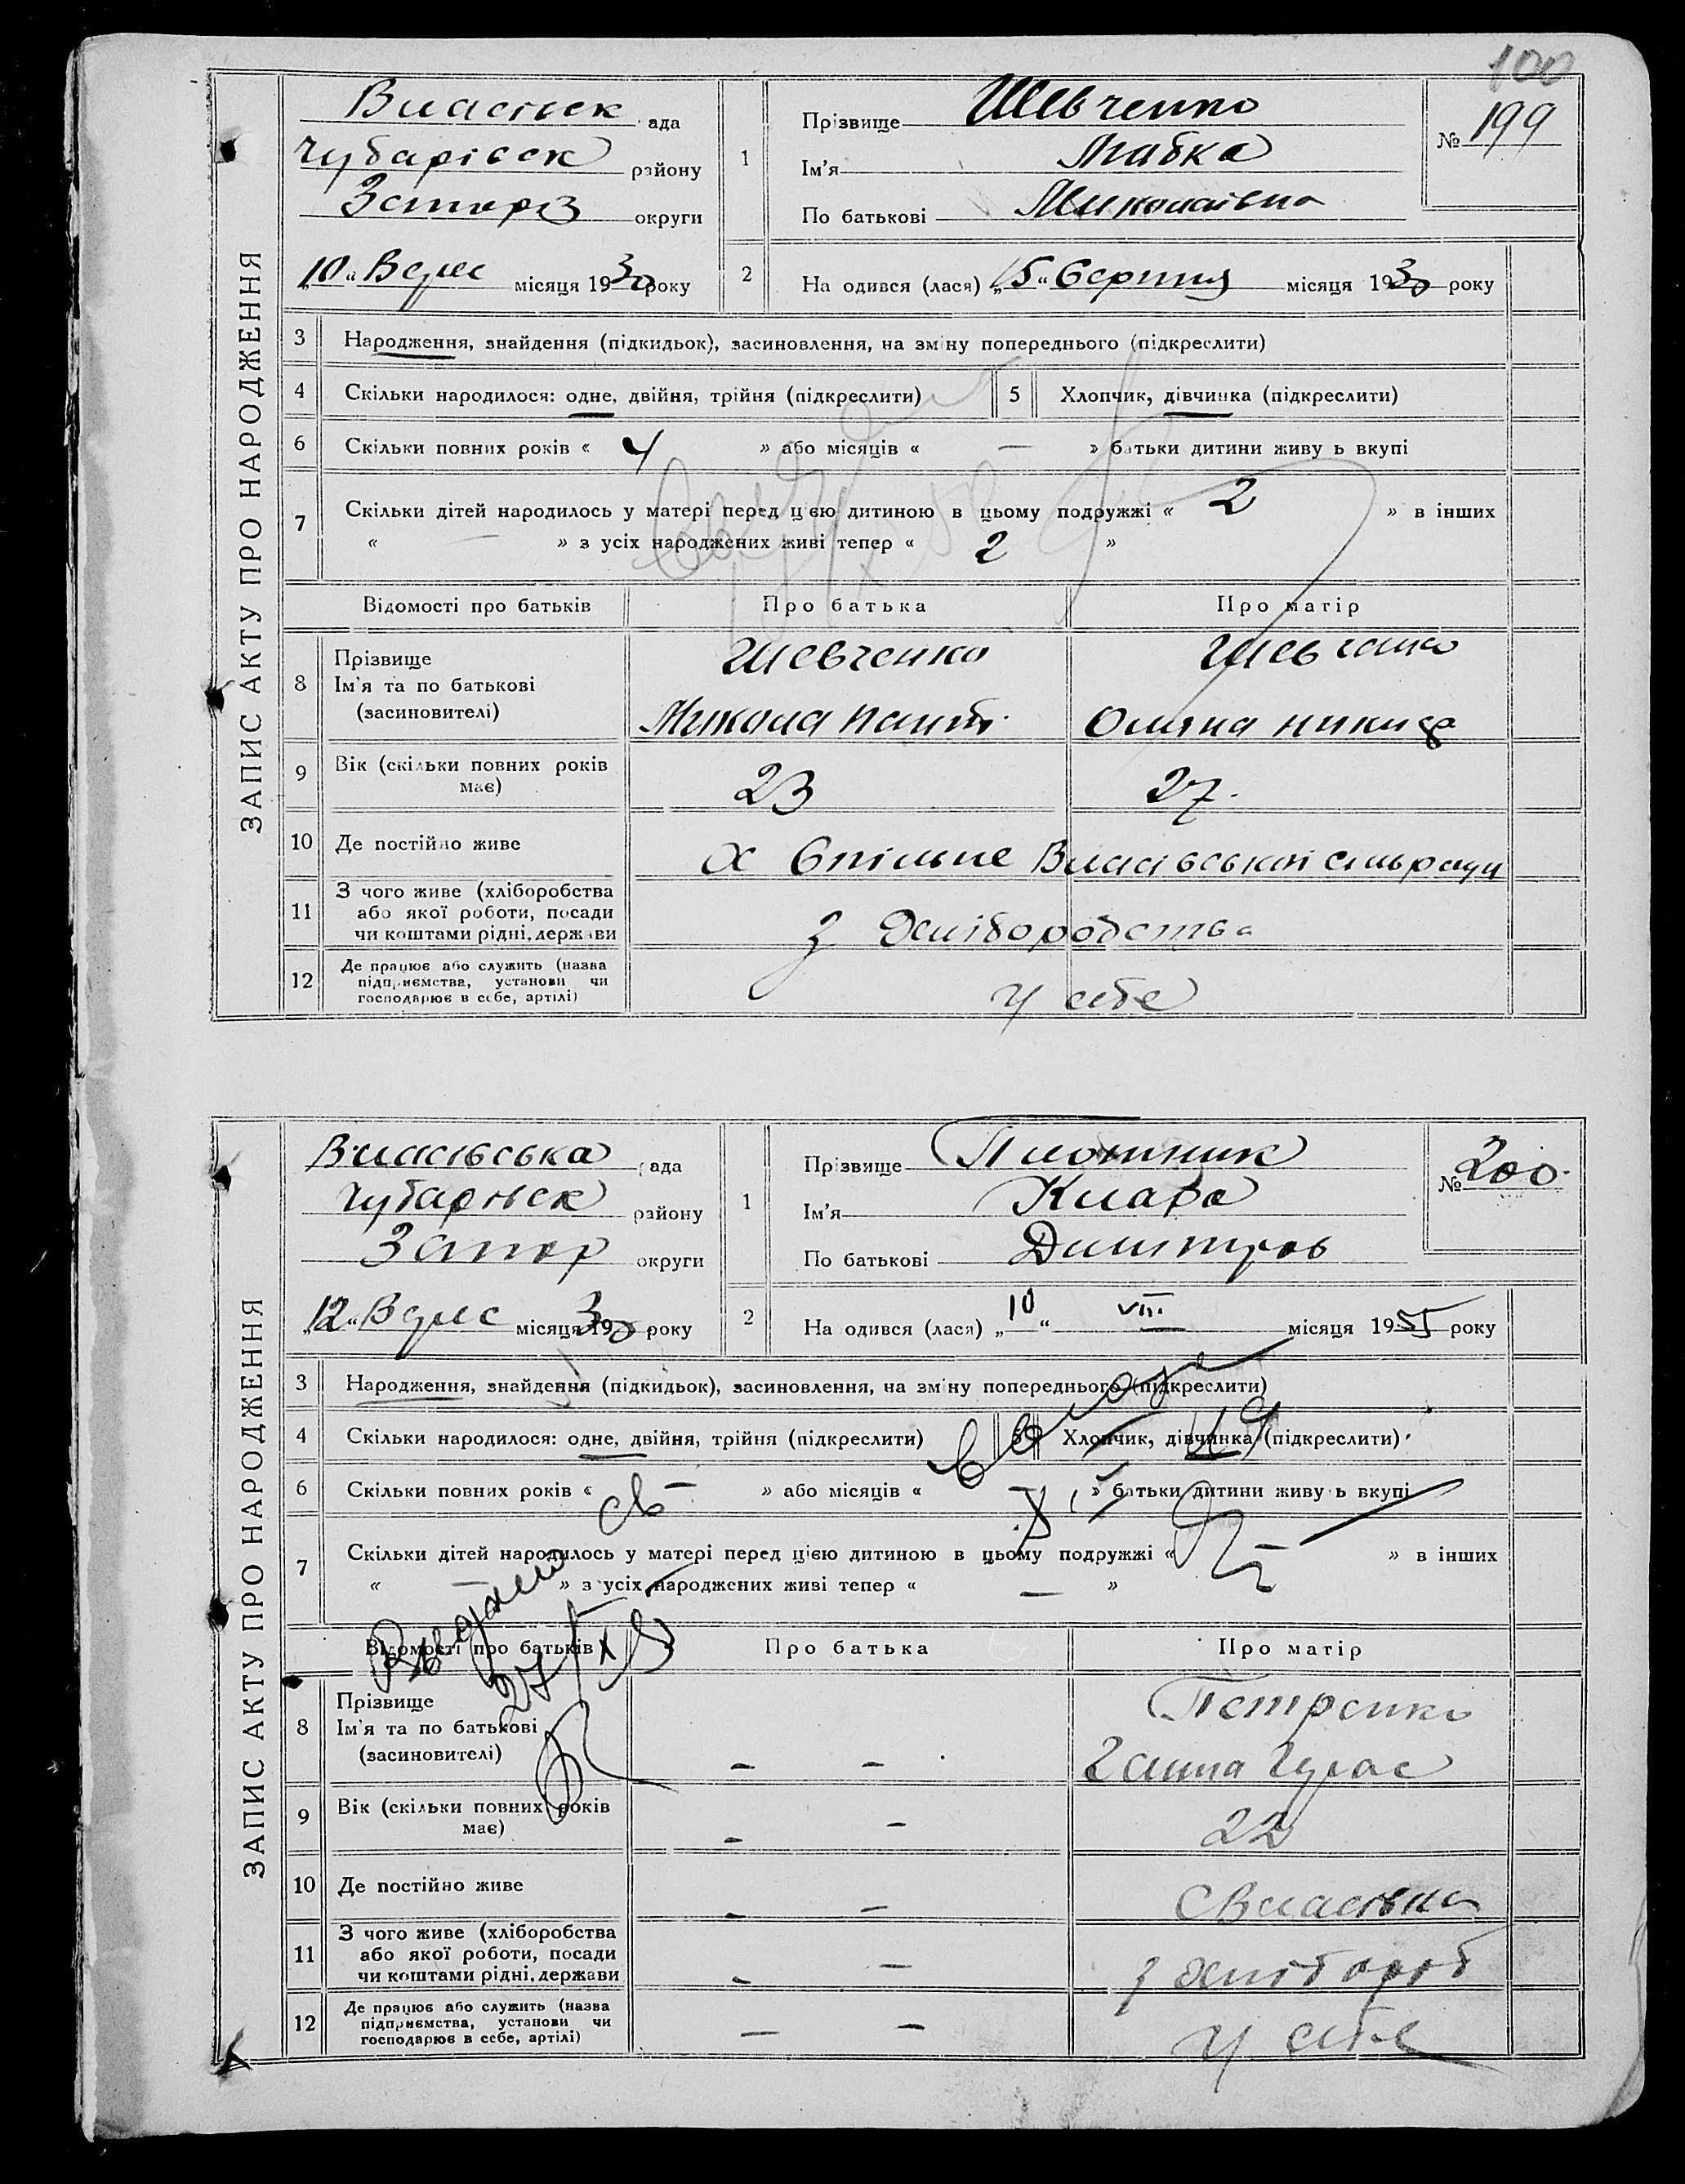 100
ЗАПИС АКТУ ПРО НАРОДЖЕННЯ
рада
Чубарівск району
Запоріз округи
„10“ Верес місяця 1930 року
1 Прізвище Шевченко
Ім'я Любка
По батькові Миколаївна
№ 199
2 На одився (лася) „15“ Серпня місяця 1930 року
3 Народження, знайдення (підкидьок), засиновлення, на зміну попереднього (підкреслити)
4 Скільки народилося: одне, двійня, трійня (підкреслити) 5 Хлопчик, дівчинка (підкреслити)
6 Скільки повних років « 4 » або місяців « — » батьки дитини живу ь вкупі
7 Скільки дітей народилось у матері перед цією дитиною в цьому подружжі « 2 » в інших
« — » з усіх народжених живі тепер « 2 »
Відомості про батьків Про батька Про матір
8 Прізвище Шевченко Шевченко
Ім'я та по батькові
(засиновителі) Микола Оляна
9 Вік (скільки повних років має) 23 27.
10 Де постійно живе х Спільне Власівської сільради
11 З чого живе (хліборобства або якої роботи, посади чи коштами рідні, держави з хліборобства
12 Де працює або служить (назва підприємства, установи чи господарює в себе, артілі) у себе
ЗАПИС АКТУ ПРО НАРОДЖЕННЯ
Власівська рада
Чубарівск району
Запор округи
„12“ Верес місяця 1930 року
1 Прізвище Плотник
Ім'я Клара
По батькові Дмитров
№ 200.
2 На одився (лася) „10“ VIII місяця 19 року
3 Народження, знайдення (підкидьок), засиновлення, на зміну попереднього (підкреслити)
4 Скільки народилося: одне, двійня, трійня (підкреслити) 5 Хлопчик, дівчинка (підкреслити)
6 Скільки повних років « — » або місяців « — » батьки дитини живу ь вкупі
7 Скільки дітей народилось у матері перед цією дитиною в цьому подружжі « — » в інших
« — » з усіх народжених живі тепер « — »
Відомості про батьків Про батька Про матір
8 Прізвище Петренко
Ім'я та по батькові
(засиновителі) — — Ганна
9 Вік (скільки повних років має) — — 22
10 Де постійно живе — — С Власівка
11 З чого живе (хліборобства або якої роботи, посади чи коштами рідні, держави — — з хлібороб
12 Де працює або служить (назва підприємства, установи чи господарює в себе, артілі) — — у себе